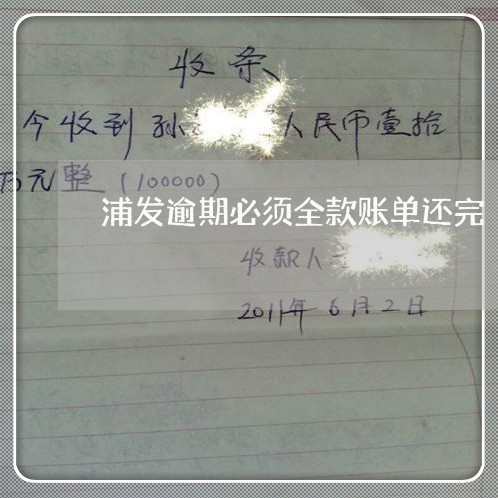 收条
今收到孙 人民币壹拾
万元整(100000)
浦发逾期必须全款账单还完
收款人
2011年6月2日